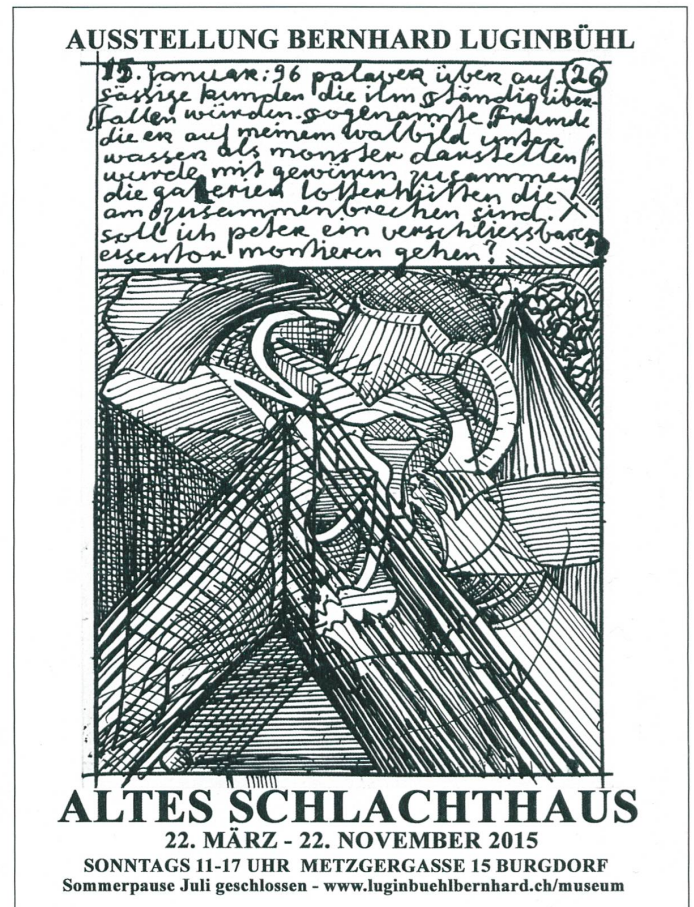 AUSSTELLUNG BERNHARD LUGINBÜHL
15. januar: 96 palaver über auf- 26
sässige kunden die ihm ständig über-
fallen würden. sogenannte freunde
die er auf meinem walbild unter
wasser als monster darstellen
wurde mit gewürm zusammen
die galerien lotterhütten die
am zusammenbrechen sind.
soll ich peter ein verschliessbares
eisentor montieren gehen?
ALTES SCHLACHTHAUS
22. MÄRZ - 22. NOVEMBER 2015
SONNTAGS 11-17 UHR METZGERGASSE 15 BURGDORF
Sommerpause Juli geschlossen - www.luginbuehlbernhard.ch/museum